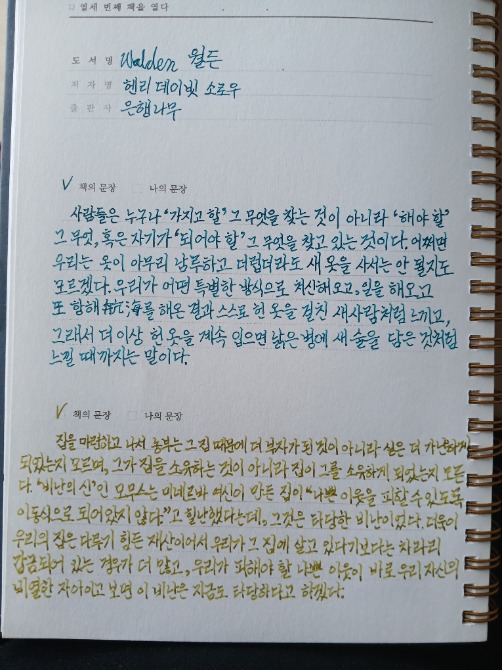 열세 번째 책을 열다
도 서 명 Walden 월든
저 자 명 헨리 데이빗 소로우
출 판 사 은행나무
✓ 책의 문장 □ 나의 문장
사람들은 누구나 '가지고 할' 그 무엇을 찾는 것이 아니라 '해야 할'
그 무엇, 혹은 자기가 '되어야 할' 그 무엇을 찾고 있는 것이다. 어쩌면
우리는 옷이 아무리 남루하고 더럽더라도 새 옷을 사서는 안 될지도
모르겠다. 우리가 어떤 특별한 방식으로 처신해오고, 일을 해오고
또 항해航海를 해온 결과 스스로 헌 옷을 걸친 새사람처럼 느끼고,
그래서 더 이상 헌 옷을 계속 입으면 낡은 병에 새 술을 담은 것처럼
느낄 때까지는 말이다.
✓ 책의 문장 □ 나의 문장
집을 마련하고 나서 농부는 그 집 때문에 더 부자가 된 것이 아니라 실은 더 가난하게
되었는지 모르며, 그가 집을 소유하는 것이 아니라 집이 그를 소유하게 되었는지 모른
다. "비난의 신'인 모무스는 미네르바 여신이 만든 집이 "나쁜 이웃을 피할 수 있도록
이동식으로 되어있지 않다"고 힐난했다는데, 그것은 타당한 비난이었다. 더욱이
우리의 집은 다루기 힘든 재산이어서 우리가 그 집에 살고 있다기보다는 차라리
감금되어 있는 경우가 더 많고, 우리가 피해야 할 나쁜 이웃이 바로 우리 자신의
비열한 자아이고 보면 이 비난은 지금도 타당하다고 하겠다.